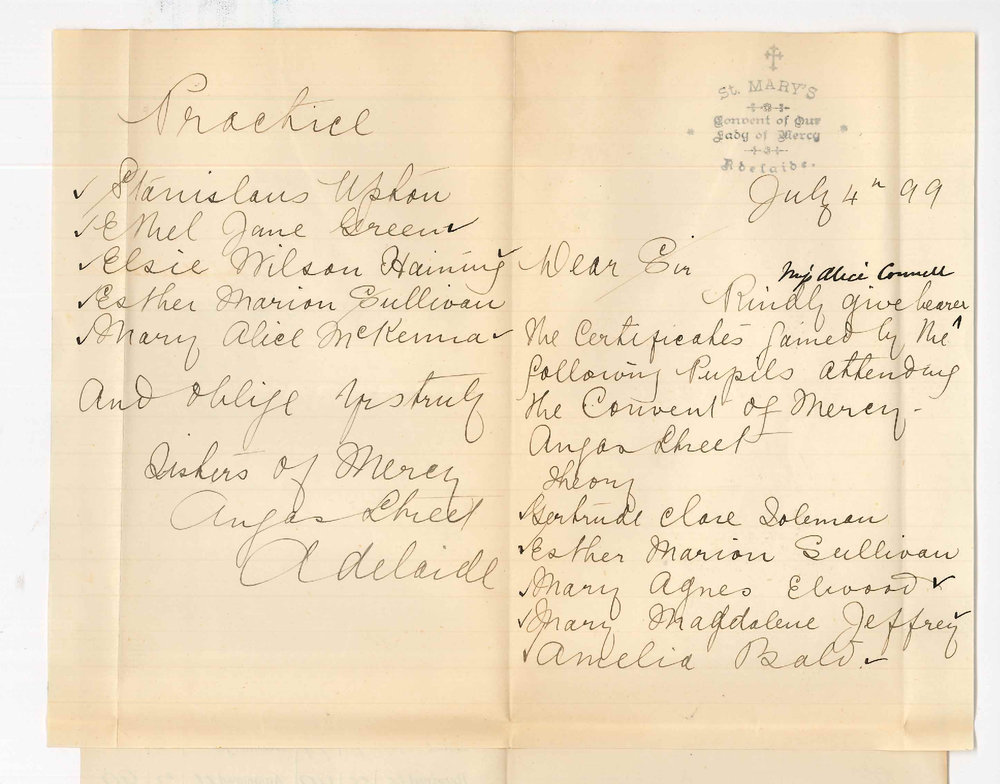 St. MARY'S
Convent of Our
Lady of Mercy
Adelaide.
July 4th 99
Dear Sir
Miss Alice Connell
Kindly give bearer ^
the Certificates gained by the
following Pupils attending
the Convent of Mercy -
Angas Street
Theory
✓ Gertrude Clare Soleman
✓ Esther Marion Sullivan
✓ Mary Agnes Elwood ✓
✓ Mary Magdalene Jeffrey
✓ Amelia Bald ✓
Practice
✓ Stanislaus Upton
✓ Ethel Jane Green ✓
✓ Elsie Wilson Haining ✓
✓ Esther Marion Sullivan
✓ Mary Alice McKenna ✓
And oblige Yrs truly
Sisters of Mercy
Angas Street
Adelaide